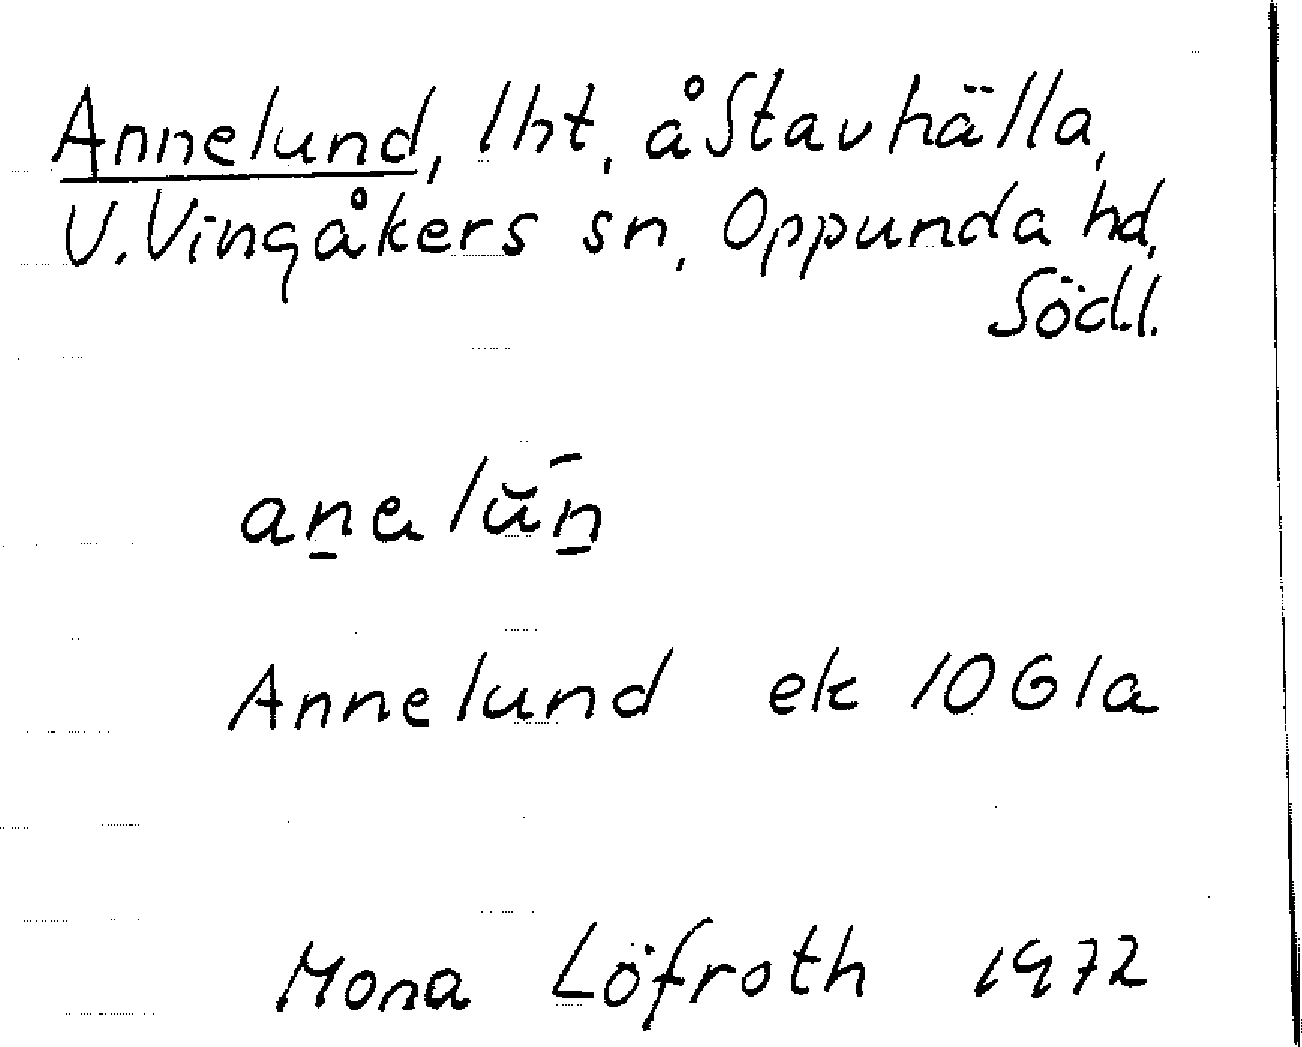 Annelund, lht, å Stavhälla,
V. Vingåkers sn, Oppunda hd,
Södl.
Annelund ek 10G1a
Mona Löfroth 1972